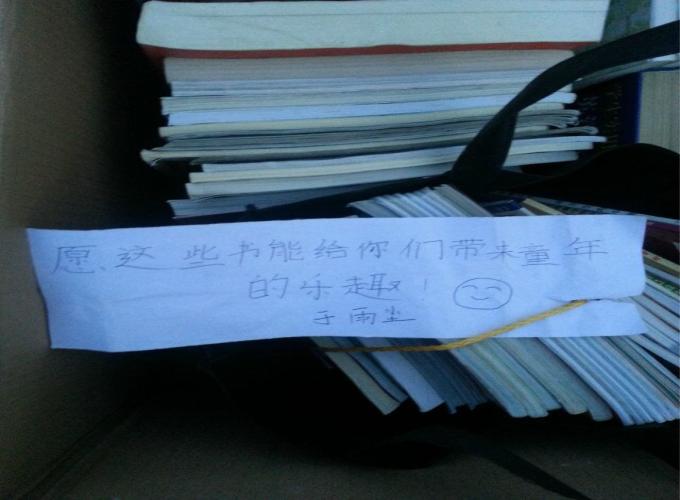 愿这些书能给你们带来童年
的乐趣!
于雨尘